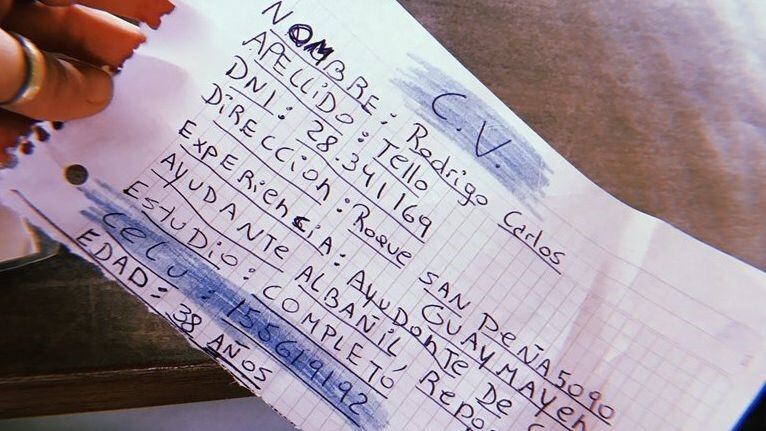 C.V.
NOMBRE: Rodrigo Carlos
APELLIDO: TELLO
DNI: 28.341169
DIRECCION: ROQUE SAN PEÑA 5090
GUAYMAYEN
EXPERIENCIA: AYUDANTE DE
AYUDANTE ALBAÑIL
ESTUDIO: COMPLETÓ
CELU: 155619192
EDAD: 38 AÑOS